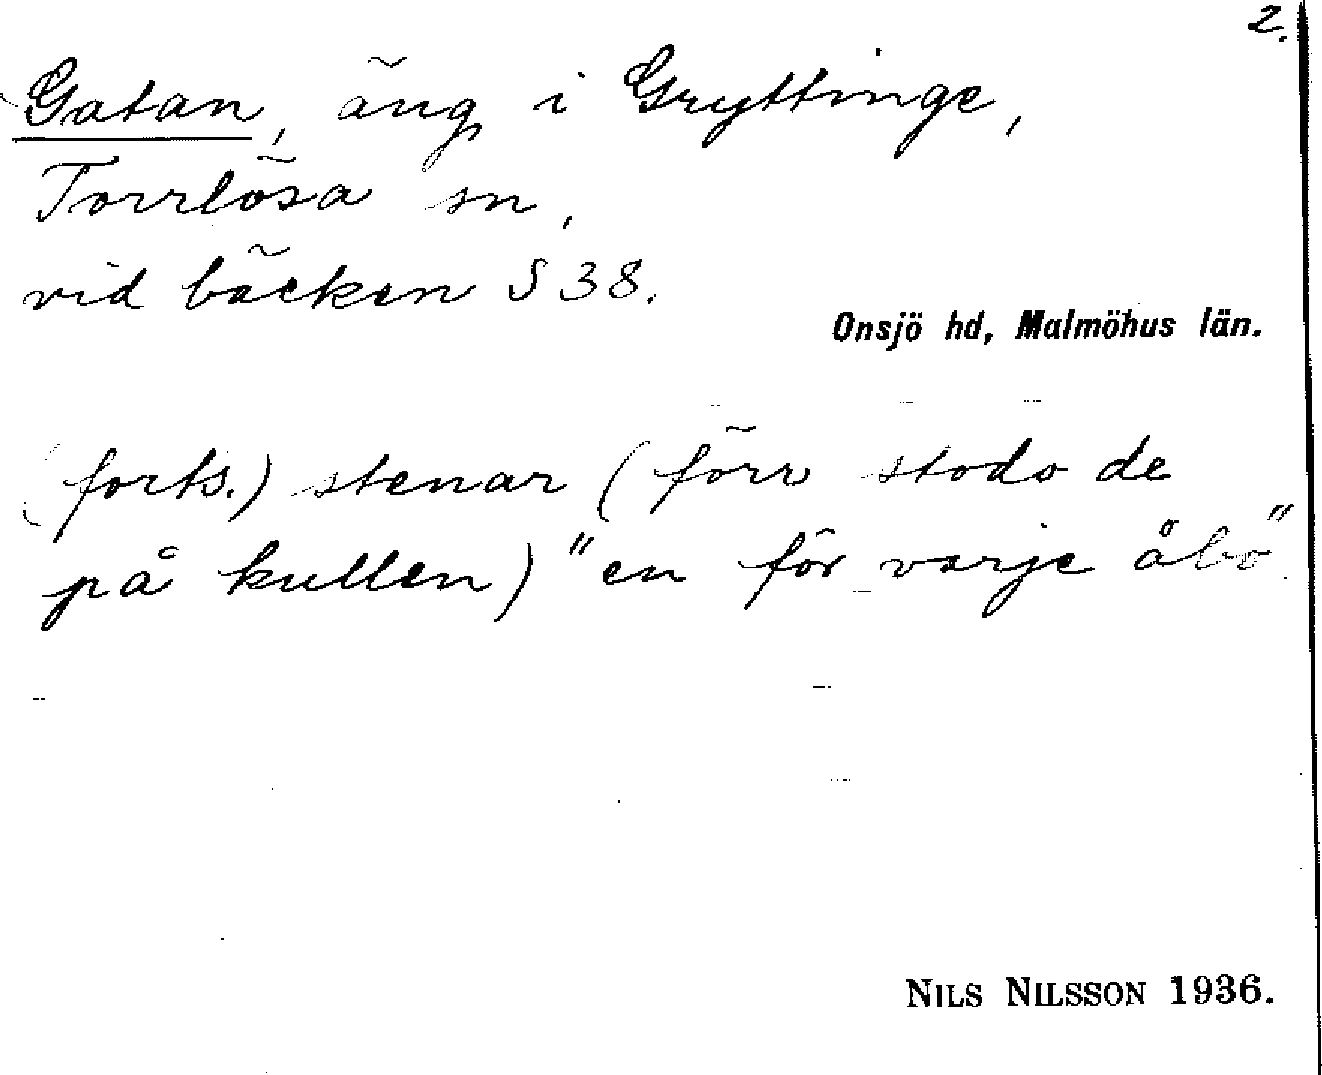 2.
Gatan, äng i Gryttinge,
Torrlösa sn,
vid bäcken S 38.
Onsjö hd, Malmöhus län.
(forts.) stenar (förr stodo de
på kullen) "en för varje åbo"
NILS NILSSON 1936.